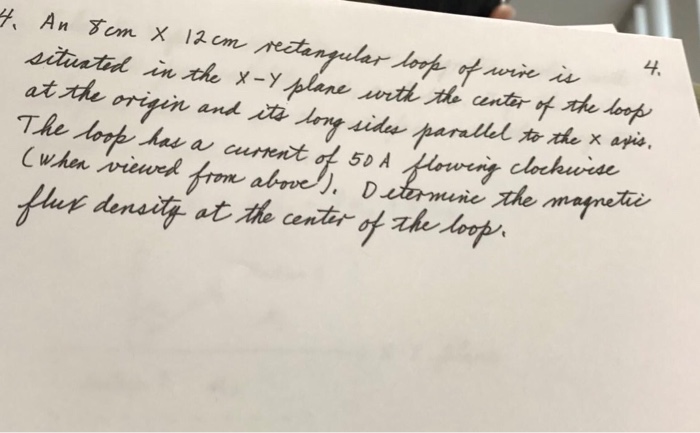 4. An 8 cm X 12 cm rectangular loop of wire is 4.
situated in the X-Y plane with the center of the loop
at the origin and its long sides parallel to the x axis.
The loop has a current of 50 A flowing clockwise
(when viewed from above). Determine the magnetic
flux density at the center of the loop.